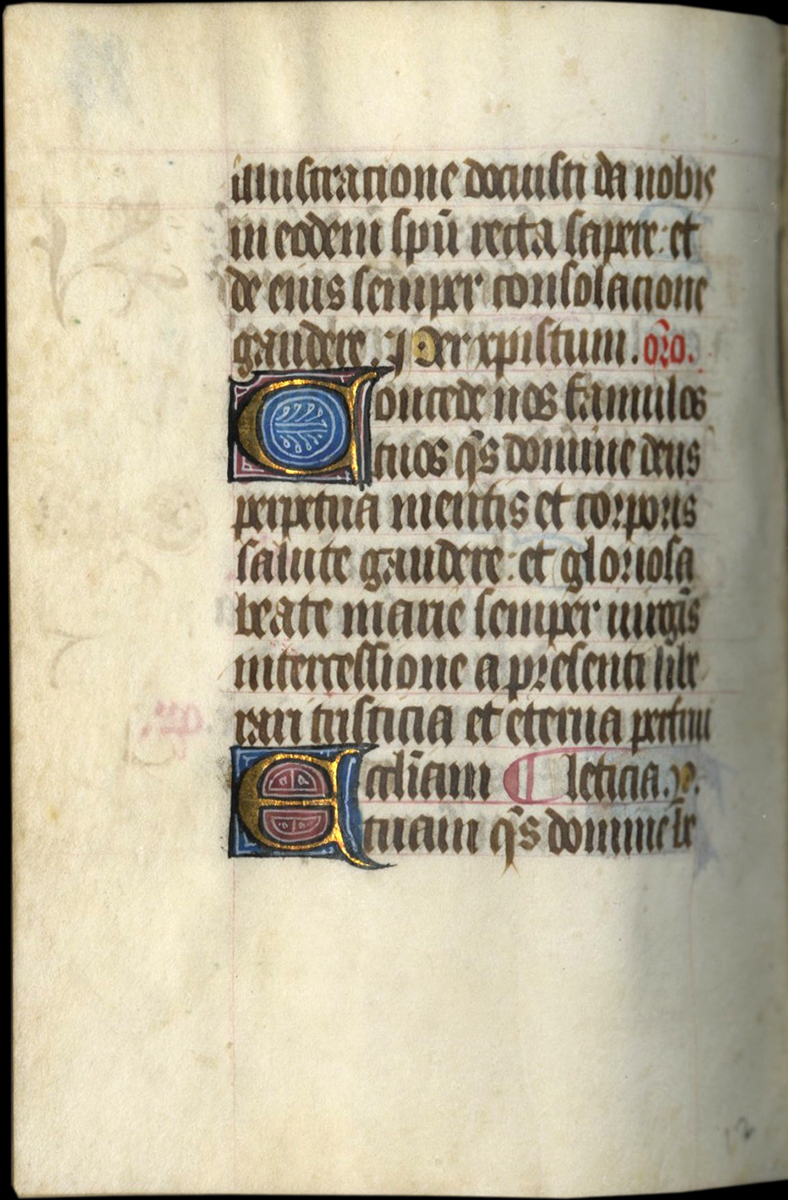 illustracione docuisti da nobis
in eodem spū recta sapere: et
de eius semper consolacione
gaudere. Per xpistum. oŕo.
Concede nos famulos
tuos q̄s domine deus
perpetua mentis et corporis
salute gaudere: et gloriosa
beate marie semper uirgīs
intercessione a presenti libe
rari tristicia et eterna perfrui
Eccl̄iam leticia. p.
tuam q̄s domine be